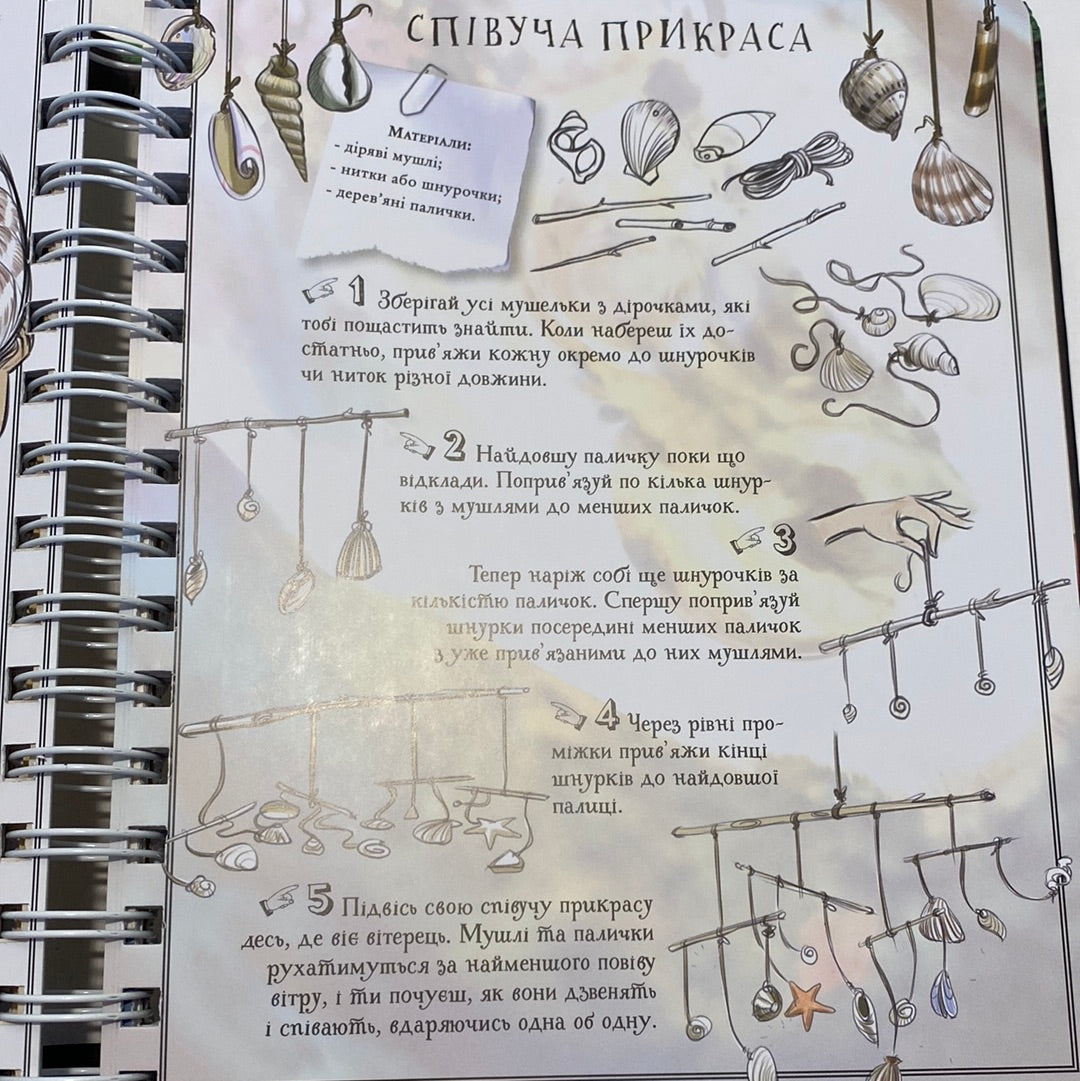 СПІВУЧА ПРИКРАСА
Матеріали:
- діряві мушлі;
- нитки або шнурочки;
- дерев’яні палички.
1 Зберігай усі мушельки з дірочками, які
тобі пощастить знайти. Коли набереш їх до-
статньо, прив’яжи кожну окремо до шнурочків
чи ниток різної довжини.
2 Найдовшу паличку поки що
відклади. Поприв’язуй по кілька шнур-
ків з мушлями до менших паличок.
3
Тепер наріж собі ще шнурочків за
кількістю паличок. Спершу поприв’язуй
шнурки посередині менших паличок
з уже прив’язаними до них мушлями.
4 Через рівні про-
міжки прив’яжи кінці
шнурків до найдовшої
палиці.
5 Підвісь свою співучу прикрасу
десь, де віє вітерець. Мушлі та палички
рухатимуться за найменшого повіву
вітру, і ти почуєш, як вони дзвенять
і співають, вдаряючись одна об одну.